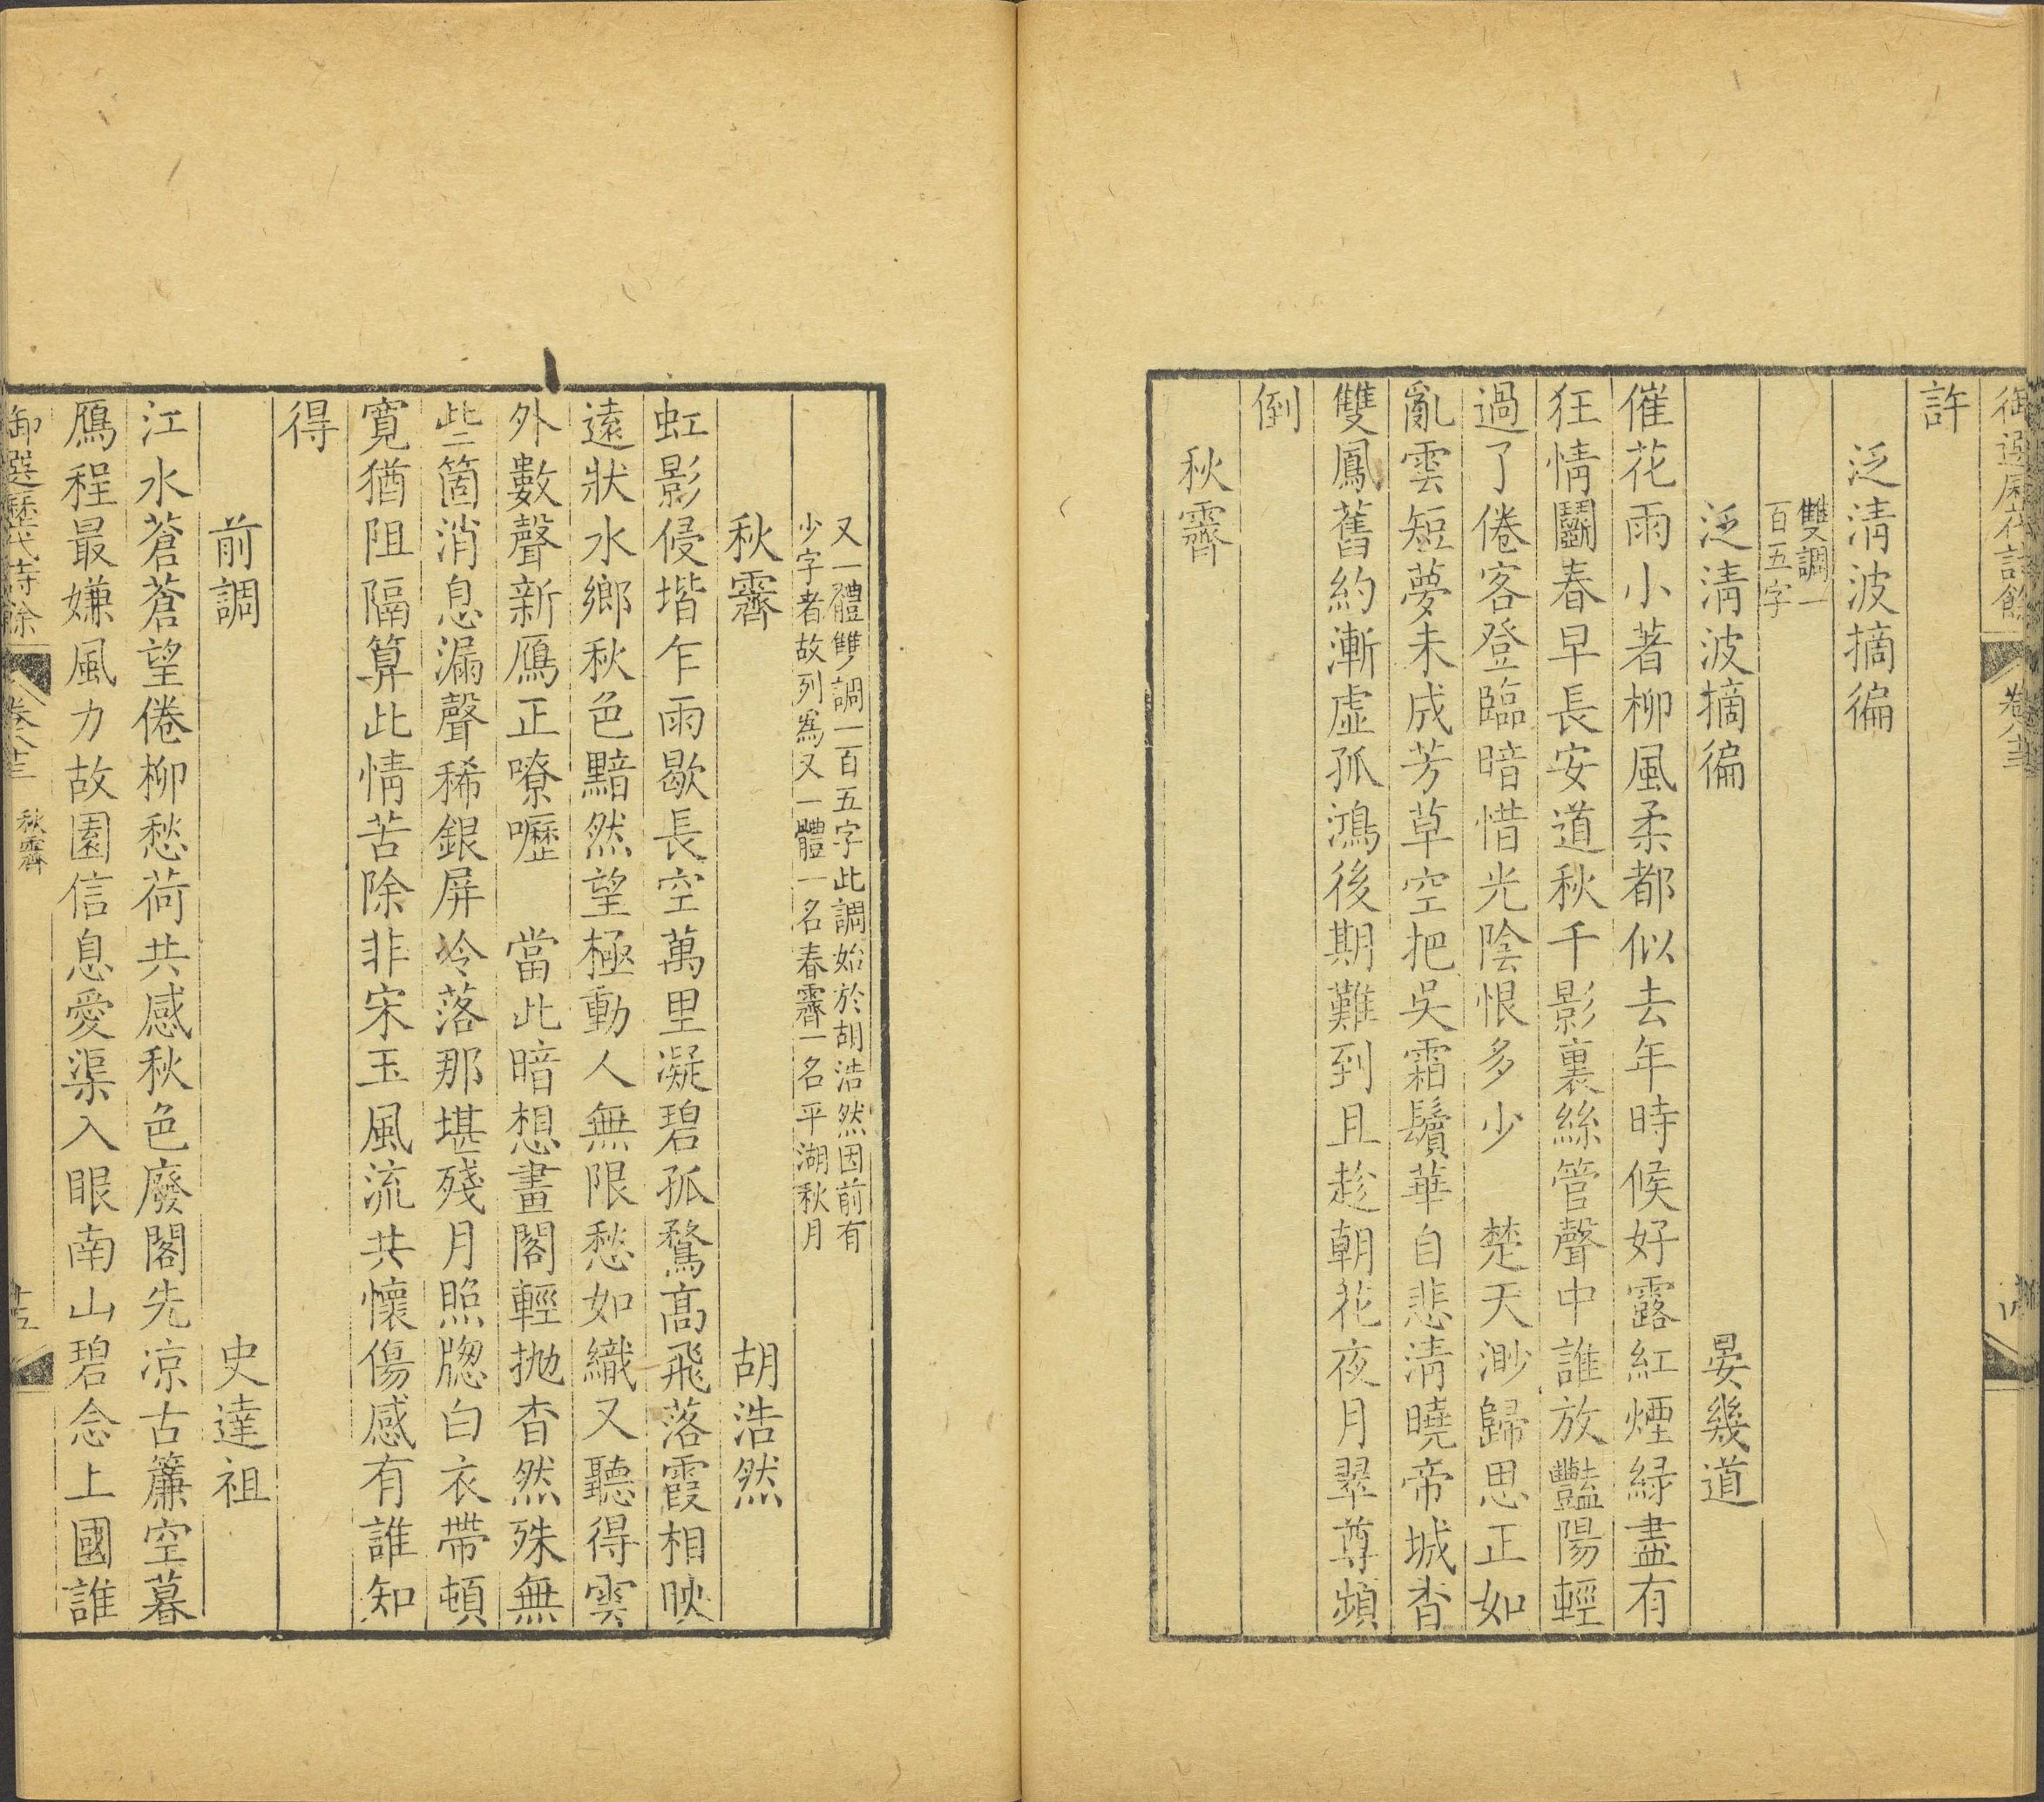 御選歷代詩餘
卷八十三
許
泛清波摘徧
雙調一
百五字
泛清波摘徧 晏幾道
催花雨小著柳風柔都似去年時候好露紅煙綠盡有
狂情鬬春早長安道秋千影裏絲管聲中誰放豔陽輕
過了倦客登臨暗惜光陰恨多少 楚天渺歸思正如
亂雲短夢未成芳草空把吳霜鬢華自悲清曉帝城杳
雙鳳舊約漸虛孤鴻後期難到且趁朝花夜月翠尊頻
倒
秋霽
又一體雙調一百五字此調始於胡浩然因前有
少字者故列為又一體一名春霽一名平湖秋月
秋霽 胡浩然
虹影侵堦乍雨歇長空萬里凝碧孤鶩高飛落霞相映
遠狀水鄉秋色黯然望極動人無限愁如織又聽得雲
外數聲新鴈正嘹嚦 當此暗想畫閣輕抛杳然殊無
些箇消息漏聲稀銀屏冷落那堪殘月照牕白衣帶頓
寬猶阻隔算此情苦除非宋玉風流共懷傷感有誰知
得
前調 史達祖
江水蒼蒼望倦柳愁荷共感秋色廢閣先凉古簾空暮
鴈程最嫌風力故園信息愛渠入眼南山碧念上國誰
御選歷代詩餘
卷八十三
秋霽
十五